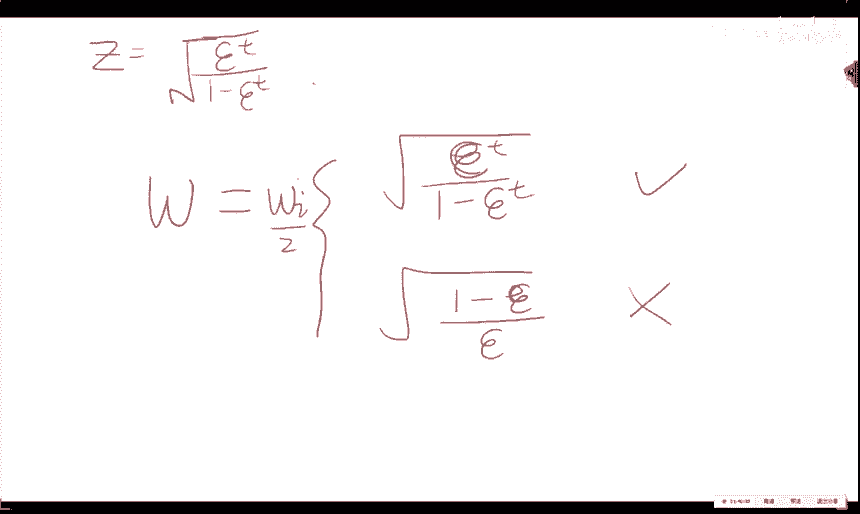 Z = √(ε^t / (1 - ε^t))
W = w_i / z { √(ε^t / (1 - ε^t)) ✓
√((1 - ε) / ε) ✗